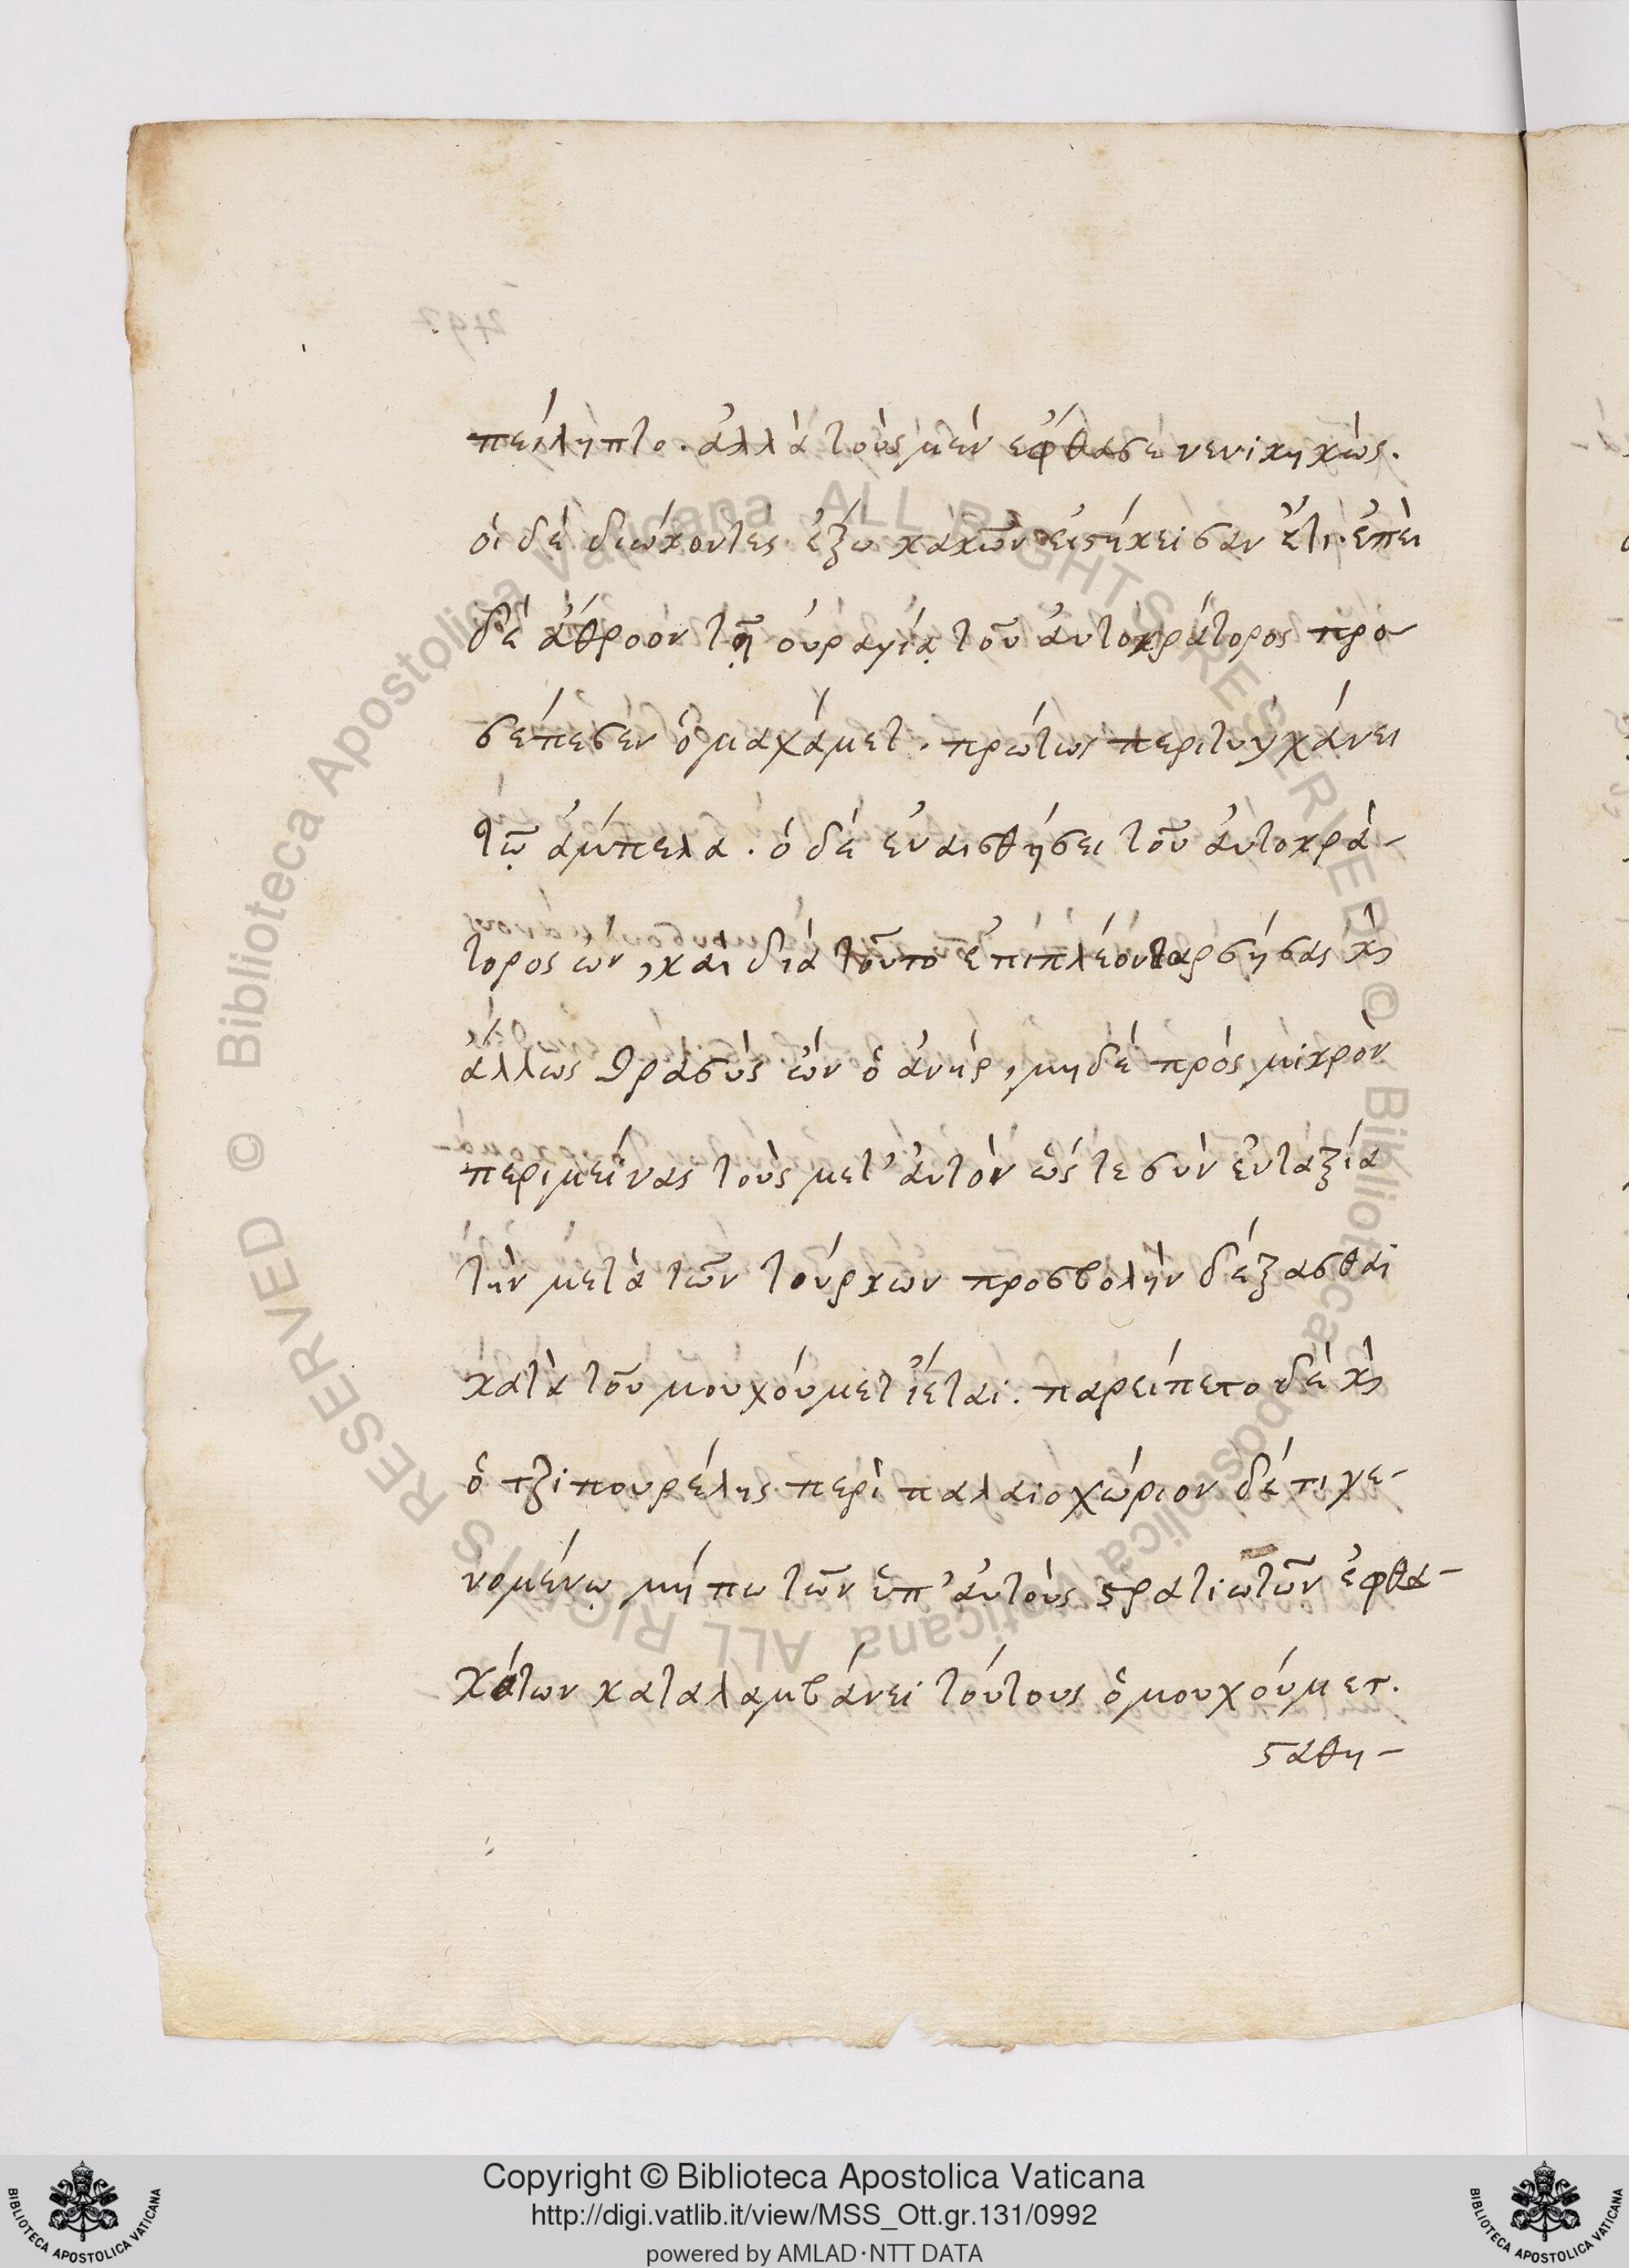 πείληπτο. ἀλλὰ τοὺς μὲν ἔφθασε νενικηκώς.
οἱ δὲ διώκοντες ἔξω κακῶν εἰστήκεισαν ἔτι. ἐπεὶ
δὲ ἄθροον τῇ οὐραγίᾳ τοῦ αὐτοκράτορος προ
σέπεσεν ὁ μαχάμετ. πρώτως περιτυγχάνει
τῷ ἀμπελα. ὁ δὲ ἐν αἰσθήσει τοῦ αὐτοκρά-
τορος ὢν, καὶ διὰ τοῦτο ἐπιπλέον θαρσήσας κ
ἄλλως θρασὺς ὢν ὁ ἀνὴρ, μηδὲ πρὸς μικρὸν
περιμείνας τοὺς μετ' αὐτὸν ὥς τε σὺν εὐταξία
τὴν μετὰ τῶν τούρκων προσβολὴν δέξασθαι
κατὰ τοῦ μουχούμετ ἵεται. παρείπετο δὲ κ
ὁ τζιπουρέλης περὶ παλαιοχώριον δέ τι γε-
νομένῳ μήπω τῶν ὑπ' αὐτοὺς στρατιωτῶν ἐφθα-
κότων καταλαμβάνει τούτους ὁ μουχούμετ.
σταθη-
Copyright © Biblioteca Apostolica Vaticana
http://digi.vatlib.it/view/MSS_Ott.gr.131/0992
powered by AMLAD·NTT DATA
BIBLIOTECA APOSTOLICA VATICANA
BIBLIOTECA APOSTOLICA VATICANA
© Biblioteca Apostolica Vaticana ALL RIGHTS RESERVED © Biblioteca Apostolica Vaticana ALL RIGHTS RESERVED